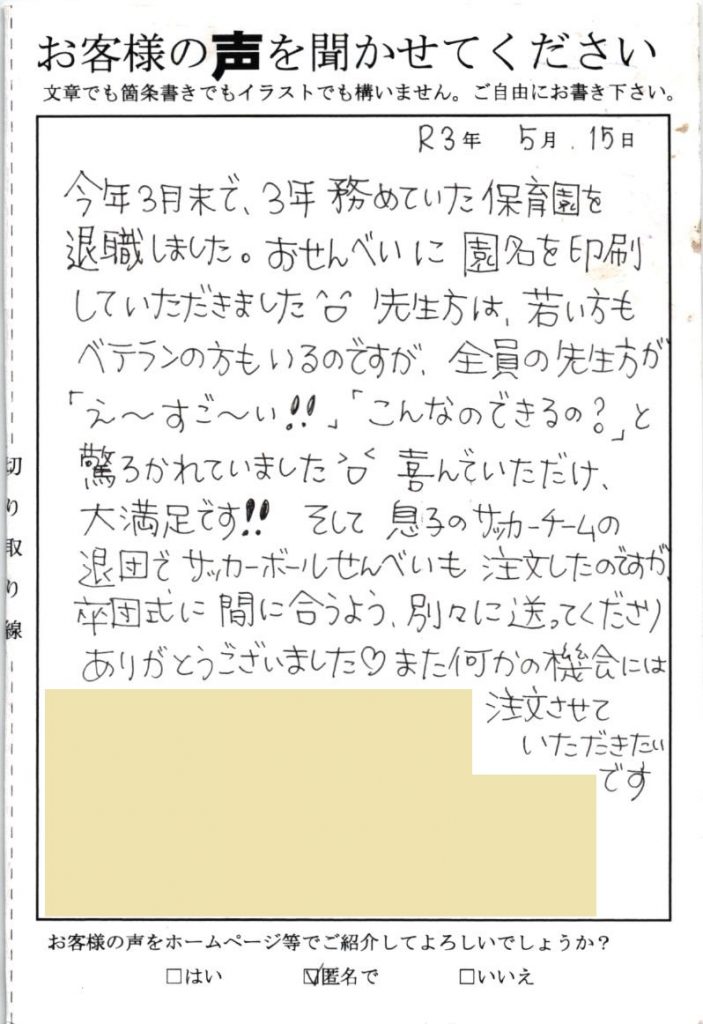 お客様の声を聞かせてください
文章でも箇条書きでもイラストでも構いません。ご自由にお書き下さい。
R3年 5月 15日
今年3月末で、3年務めていた保育園を
退職しました。おせんべいに園名を印刷
していただきました 先生方は、若い方も
ベテランの方もいるのですが、全員の先生方が
「え〜すご〜い!!」「こんなのできるの?」と
驚ろかれていました 喜んでいただけ、
大満足です!! そして息子のサッカーチームの
退団でサッカーボールせんべいも注文したのですが、
卒団式に間に合うよう、別々に送ってくださり
ありがとうございました♡また何かの機会には
注文させて
いただきたい
です
切り取り線
お客様の声をホームページ等でご紹介してよろしいでしょうか?
□はい ☑匿名で □いいえ